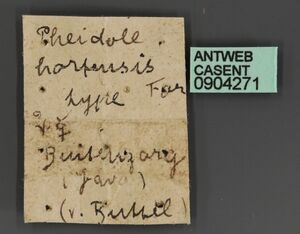 Pheidole
hortensis
type For
☿
Buitenzorg
(Java)
(v. Buttel)
ANTWEB
CASENT
0904271